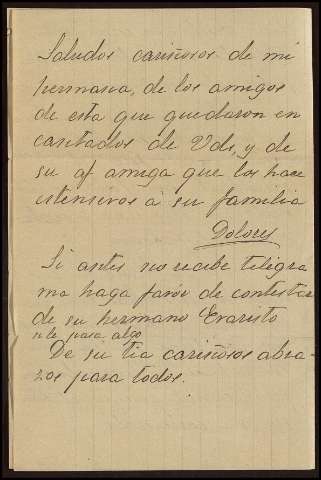 Saludos cariñosos de mi
hermana, de los amigos
de esta que quedaron en
cantados de Vds, y de
su af amiga que los hace
estensivos á su familia
Dolores
Si antes no recibe telégra
ma haga favor de contestar
de su hermano Evaristo
si le pasa algo
De su tia cariñosos abra-
zos para todos.